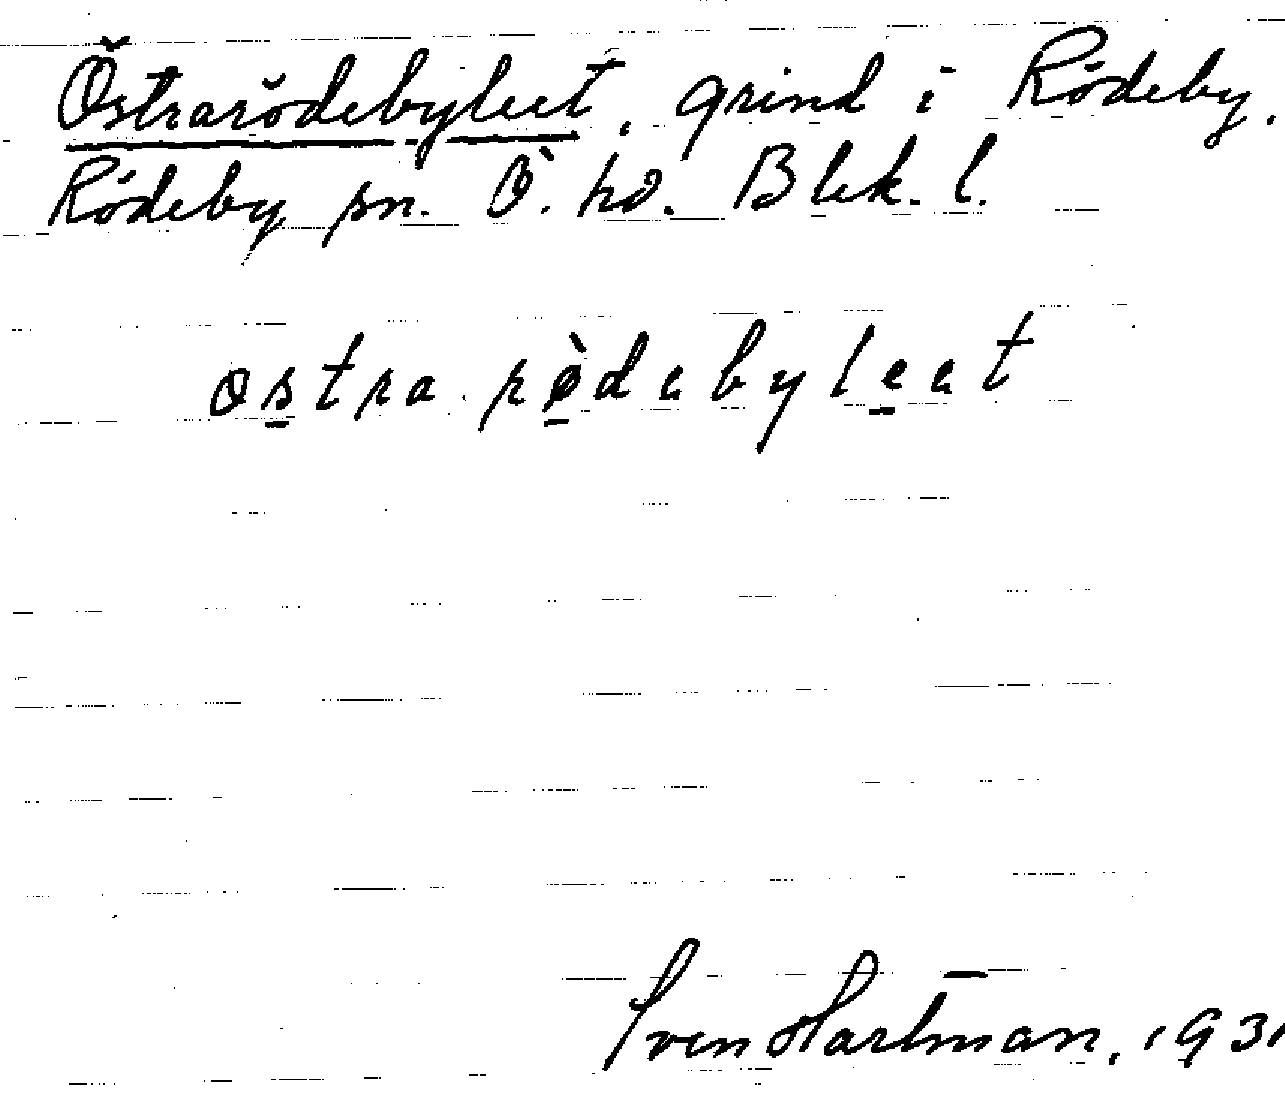 Östrarödebyleet, grind i Rödeby,
Rödeby sn. Ö. hd. Blek. l.
ostra rödebyleet
Sven Hartman, 1931